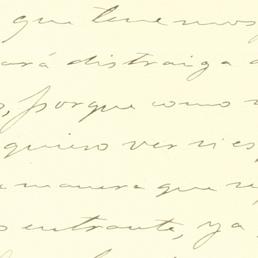 que tenemos
ará distraiga a
, porque como
quiero ver si es
manera que
entrante, ya